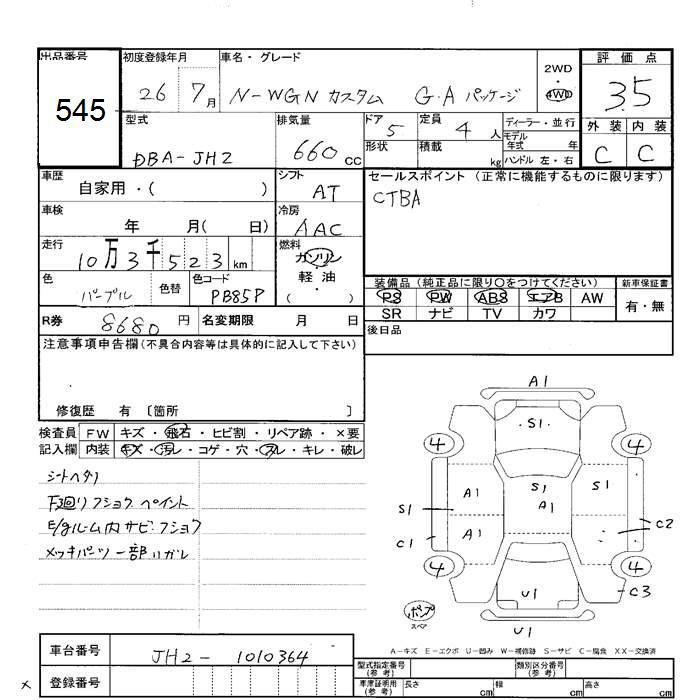 出品番号
545
初度登録年月
26 7月
車名・グレード
N-WGN カスタム G・A パッケージ
2WD
・
4WD
評価点
3.5
外装 内装
C C
型式
DBA-JH2
排気量
660cc
ドア
5
形状
定員
4人
積載
kg
ディーラー・並行
モデル
年式 年
ハンドル 左・右
車歴
自家用・( )
シフト
AT
セールスポイント (正常に機能するものに限ります)
CTBA
車検
年 月( 日)
冷房
AAC
走行
10万3千523km
燃料
ガソリン
軽・油
( )
色
パープル
色替
色コード
PB85P
装備品 (純正品に限り○をつけてください)
PS PW ABS エアB AW
SR ナビ TV カワ
新車保証書
有・無
R券 8680円
名変期限 月 日
後日品
注意事項申告欄 (不具合内容等は具体的に記入して下さい)
修復歴 有 〔箇所 〕
検査員 FW キズ・飛石・ヒビ割・リペア跡・×要
記入欄 内装 キズ・汚レ・コゲ・穴・スレ・キレ・破レ
シートヘタリ
下回リフショク ペイント
E/gルーム内サビ・フショク
メッキパーツ一部ハガレ
A1
S1
4 4
A1 S1 S1
A1
S1 C2
C1 A1
4 4
U1 C3
ポンプ
スペア
U1
A−キズ E−エクボ U−凹み W−補修跡 S−サビ C−腐食 XX−交換済
車台番号 JH2-1010364
登録番号
×
型式指定番号
(参考)
類別区分番号
(参考)
車庫証明用
(参考)
長さ cm 幅 cm 高さ cm